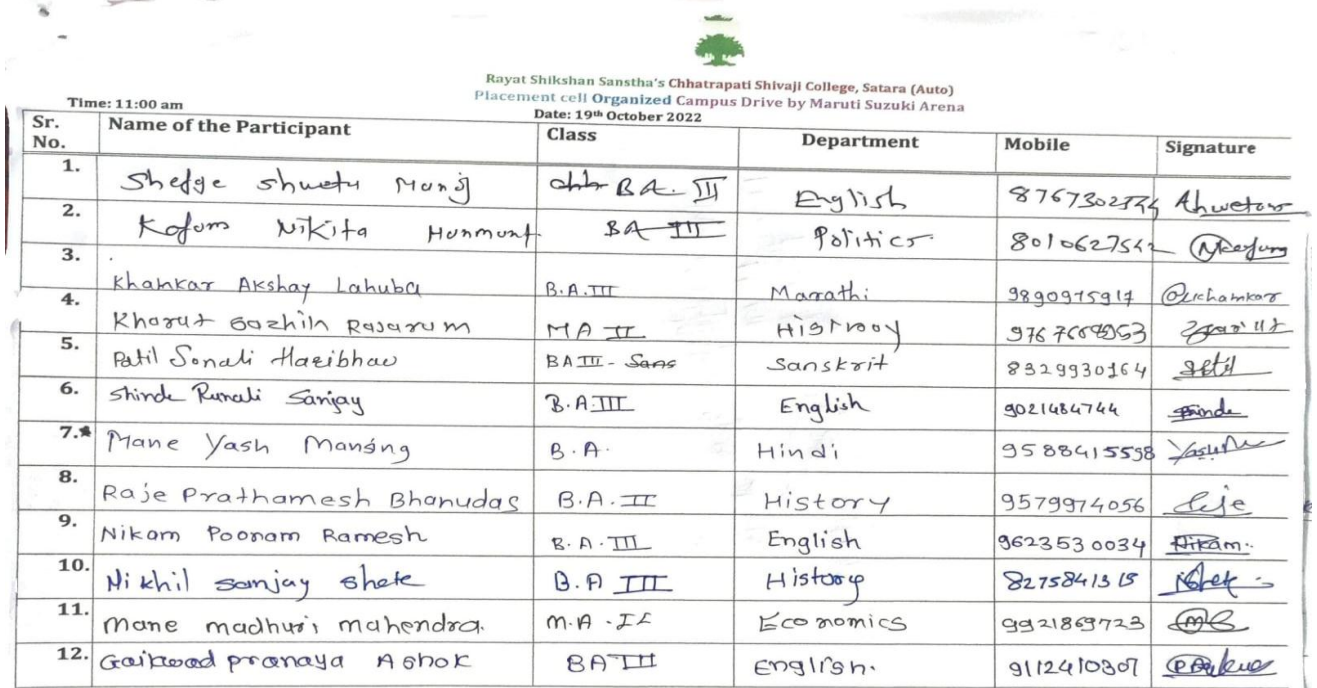 Rayat Shikshan Sanstha's Chhatrapati Shivaji College, Satara (Auto)
Placement cell Organized Campus Drive by Maruti Suzuki Arena
Time: 11:00 am Date: 19th October 2022
Sr. No. Name of the Participant Class Department Mobile Signature
1. Shedge Shweta Manoj BA. III English
2. Nikita Hanmant. BA III Politics.
3. Khamkar Akshay Lahuba B.A.III Marathi 9890975917
4. Kharat Rajaram MA II Histrooy
5. Patil Sonali Haribhau BA III - Sans Sanskrit 8329930164
6. Shinde Runali Sanjay B.A.III English 9021484744
7. Mane Yash Mansing B.A. Hindi 9588415598
8. Raje Prathamesh Bhanudas B.A. II History 9579974056
9. Nikam Poonam Ramesh B.A. III English 9623530034 Nikam.
10. Nikhil Sanjay Shete B.A III History
11. Mane madhuri mahendra. M.A - II Economics 9921869723
12. Gaikwad pranaya Ashok BA III English. 9112410307